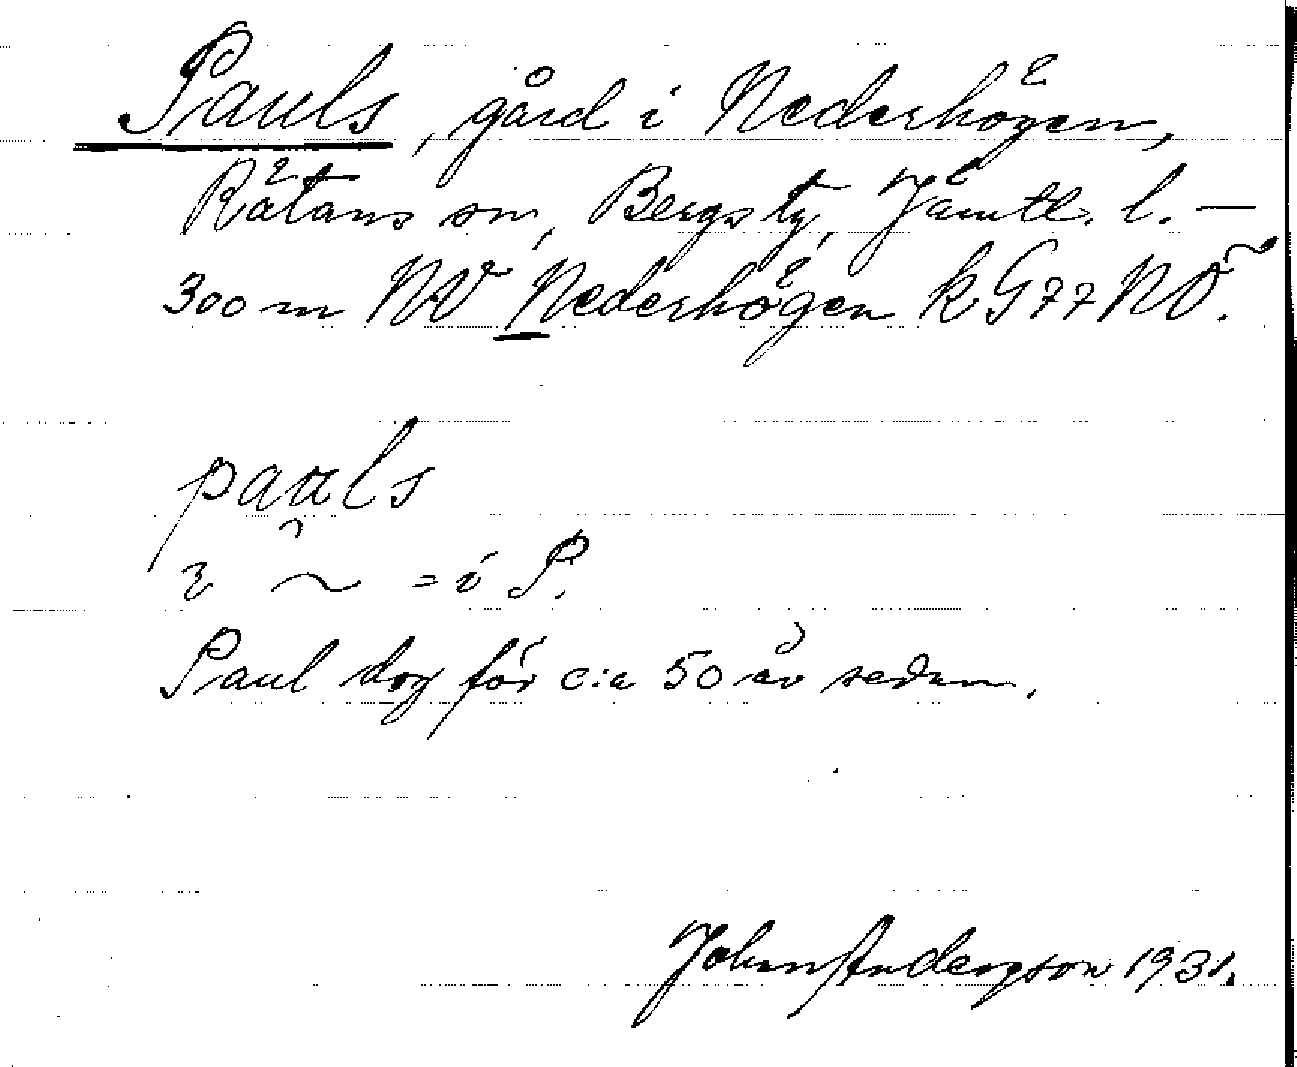 Pauls, gård i Nederhögen,
Rätans sn, Bergs tg, Jämtl. l. —
300 m NV Nederhögen k G77NO.
paals
i ~ = i P.
Paul dog för c:a 50 år sedan.
John Andersson 1931.